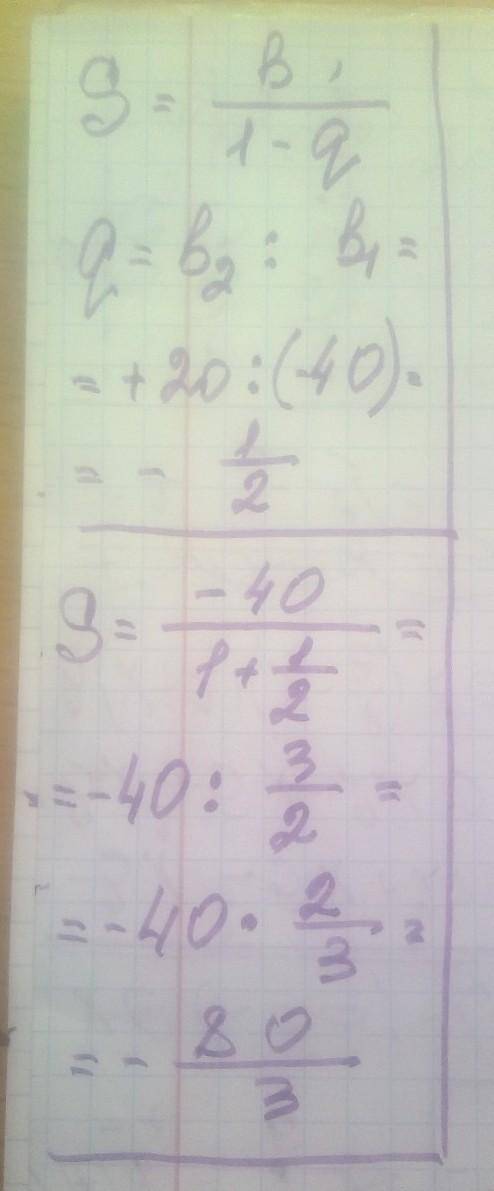 S = b₁ / (1 - q)
q = b₂ : b₁ =
= +20 : (-40) =
= - 1/2
S = -40 / (1 + 1/2) =
= -40 : 3/2 =
= -40 · 2/3 =
= - 80/3